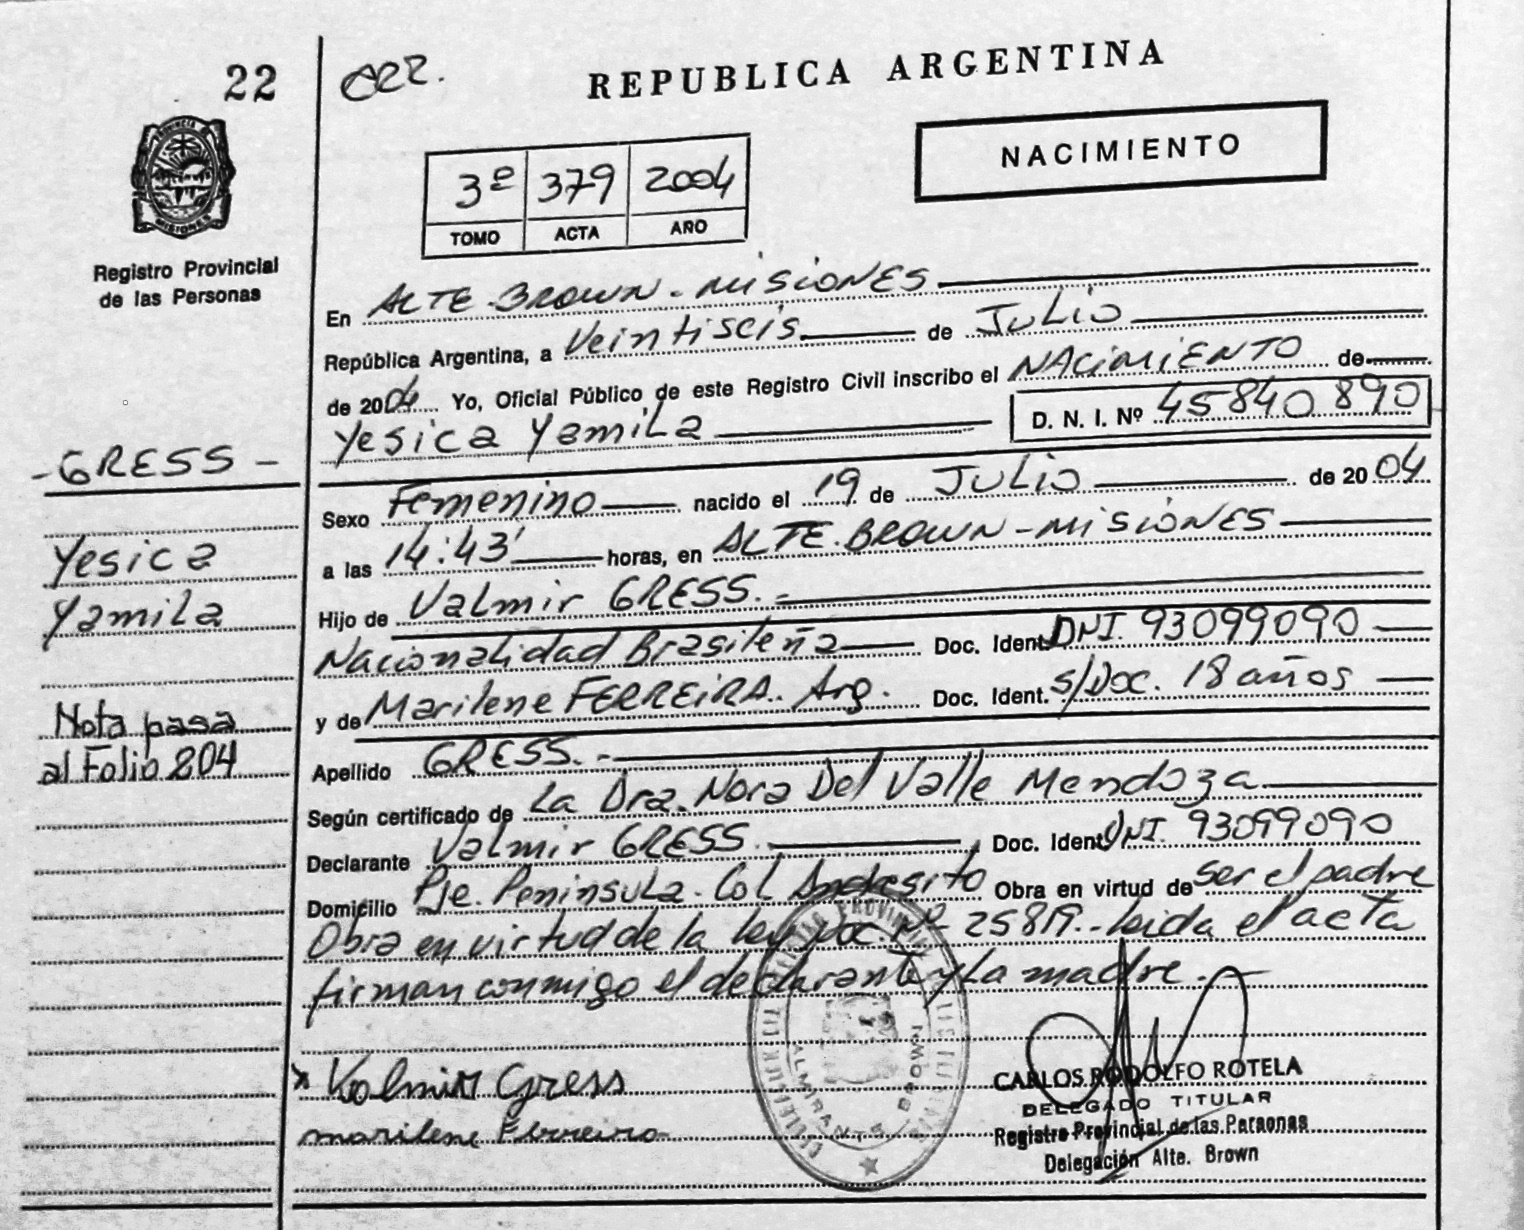 22
REPUBLICA ARGENTINA
NACIMIENTO
3º 379 2004
TOMO ACTA AÑO
PROVINCIA DE MISIONES
Registro Provincial
de las Personas
En ALTE. BROWN - MISIONES
República Argentina, a Veintiseis de JULIO
de 2004 Yo, Oficial Público de este Registro Civil inscribo el NACIMIENTO de
Yesica Yamila D. N. I. Nº 45840890
- GRESS -
Yesica
Yamila
Nota pasa
al Folio 204
Sexo Femenino nacido el 19 de JULIO de 2004
a las 14:43' horas, en ALTE. BROWN - MISIONES
Hijo de Valmir GRESS. -
Nacionalidad Brasileña Doc. Ident. DNI. 93099090
y de Marilene FERREIRA. Arg. Doc. Ident. S/Doc. 18 años
Apellido GRESS. -
Según certificado de La Dra. Nora Del Valle Mendoza
Declarante Valmir GRESS. Doc. Ident. DNI. 93099090
Domicilio Pje. Peninsula. Col Andresito Obra en virtud de ser el padre
Obra en virtud de la ley Nº 25819. - leida el acta
firman conmigo el declarante y La madre. -
Valmir Gress
marilene Ferreira
ALMIRANTE BROWN
CARLOS RODOLFO ROTELA
DELEGADO TITULAR
Registro Provincial de las Personas
Delegación Alte. Brown